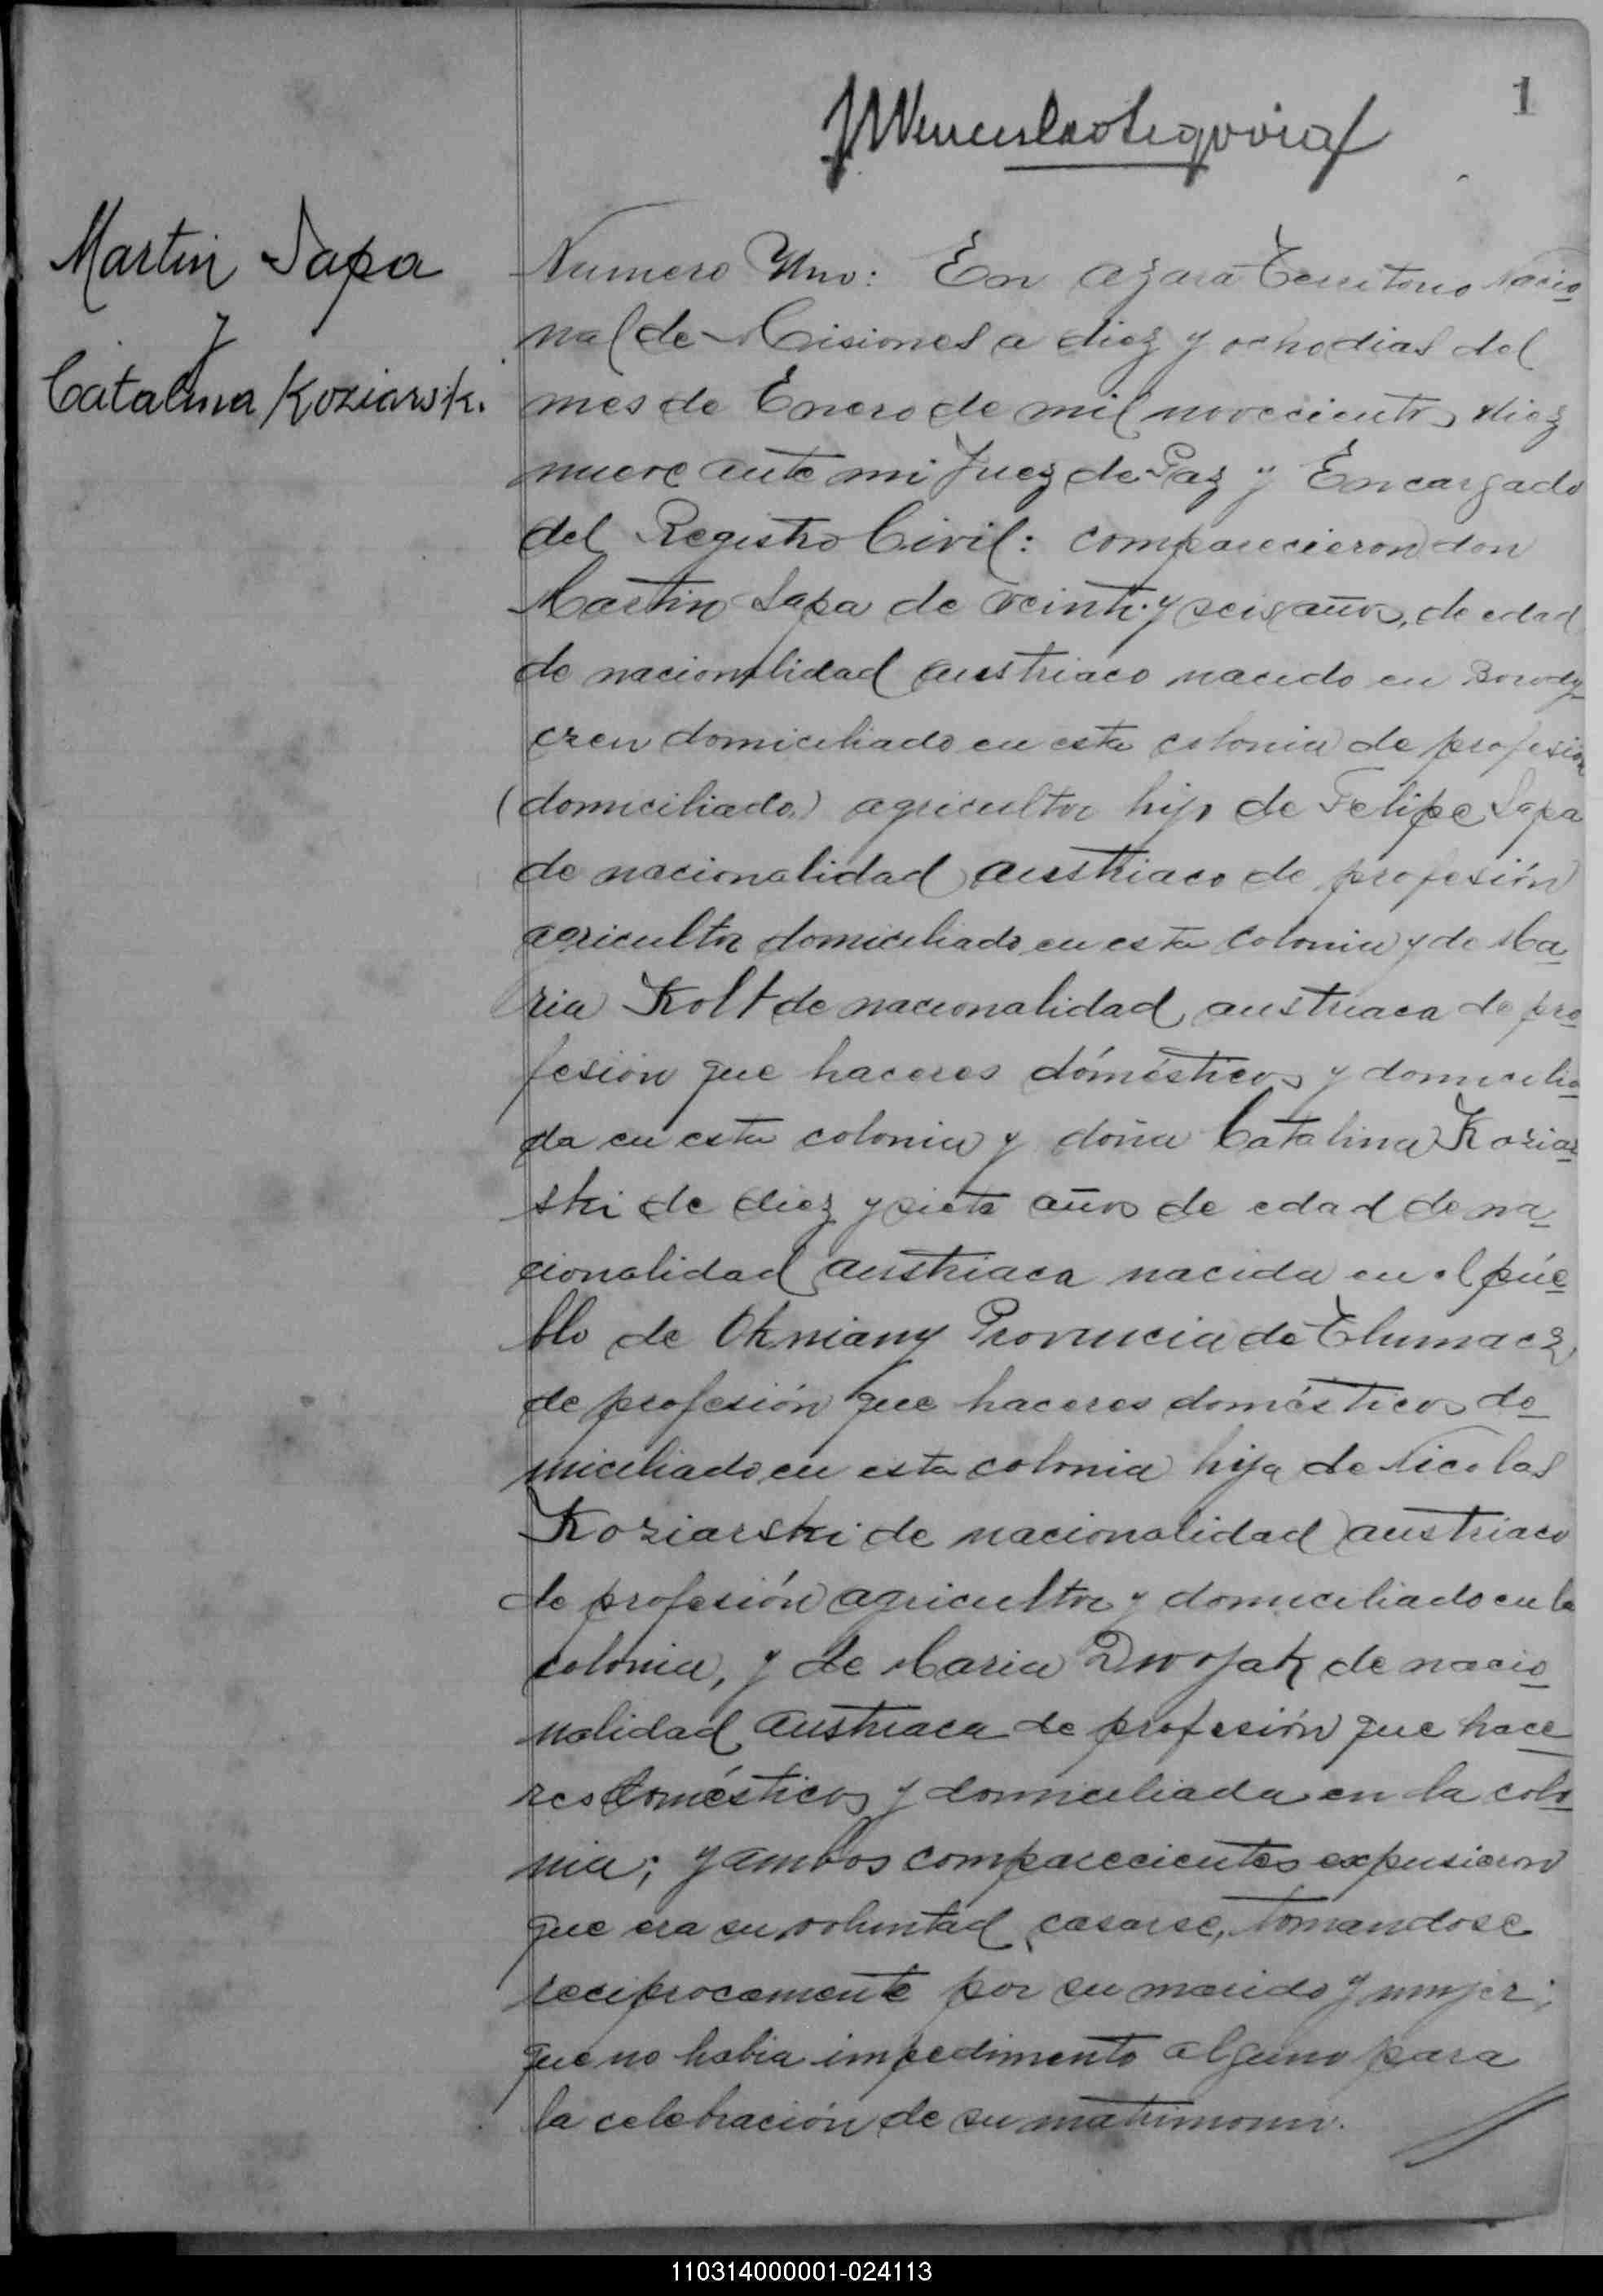 1
Martin Sapa
y
Catalina Koziarski
Numero Uno: En Azara Territorio Nacio
nal de Misiones a diez y ocho dias del
mes de Enero de mil novecientos diez
nueve ante mi Juez de Paz y Encargado
del Registro Civil: comparecieron don
Martin Sapa de veinti y seis años, de edad
de nacionalidad austriaco nacido en
domiciliado en esta colonia de profesión
(domiciliado) agricultor hijo de Felipe Sapa
de nacionalidad austriaco de profesión
agricultor domiciliado en esta colonia y de Ma
ria Kolt de nacionalidad austriaca de pro
fesión que haceres domésticos y domicilia
da en esta colonia y doña Catalina Koziar
ski de diez y siete años de edad de na
cionalidad austriaca nacida en el pue
blo de Okniany Provincia de Tlumacz
de profesión que haceres domésticos do
miciliado en esta colonia hija de Nicolas
Koziarski de nacionalidad austriaco
de profesión agricultor y domiciliado en la
colonia, y de Maria Dwojak de nacio
nalidad austriaca de profesión que hace
res domésticos y domiciliada en la colo
nia; y ambos comparecientes expusieron
que era su voluntad casarse, tomandose
reciprocamente por su marido y mujer;
que no habia impedimento alguno para
la celebración de su matrimonio.
110314000001-024113